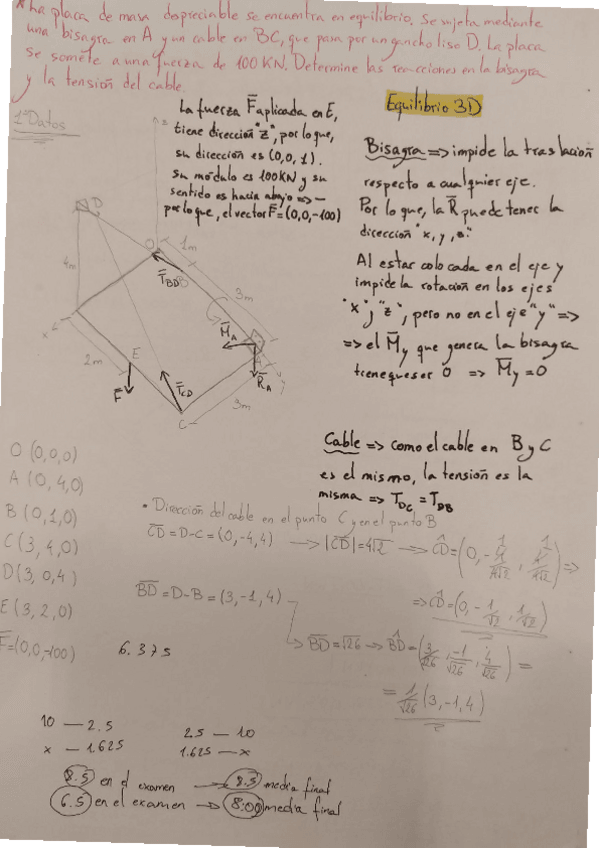 * Una placa de masa despreciable se encuentra en equilibrio. Se sujeta mediante
una bisagra en A y un cable en BC, que pasa por un gancho liso D. La placa
se somete a una fuerza de 100 KN. Determine las reacciones en la bisagra
y la tensión del cable.
Equilibrio 3D
1º Datos
La fuerza F̅ aplicada en E,
tiene dirección "z", por lo que,
su dirección es (0,0,1).
Su módulo es 100KN y su
sentido es hacia abajo =>
por lo que, el vector F̅=(0,0,-100)
Bisagra => impide la traslación
respecto a cualquier eje.
Por lo que, la R̅ puede tener la
dirección "x, y, o z"
Al estar colocada en el eje y
impide la rotación en los ejes
"x" y "z", pero no en el eje "y" =>
=> el M̅y que genera la bisagra
tiene que ser 0 => M̅y=0
z
D
O
1m
B
T̅BD
4m
3m
M̅A
x
2m
E
F̅
T̅CD
C
3m
R̅A
A
y
Cable => como el cable en B y C
es el mismo, la tensión es la
misma => TDC = TDB
O (0,0,0)
A (0,4,0)
B (0,1,0)
C (3,4,0)
D (3,0,4)
E (3,2,0)
F̅=(0,0,-100)
• Dirección del cable en el punto C y en el punto B
C̅D̅=D-C=(0,-4,4) → |C̅D̅|=4√2 → ĈD=(0,-4/4√2, 4/4√2) =>
=> ĈD=(0,-1/√2, 1/√2)
B̅D̅=D-B=(3,-1,4)
→ B̅D̅=√26 → B̂D=(3/√26, -1/√26, 4/√26) =
= 1/√26 (3,-1,4)
6.375
10 — 2.5
x — 1.625
2.5 — 10
1.625 — x
8.5 en el examen → 8.5 media final
6.5 en el examen → 8:00 media final